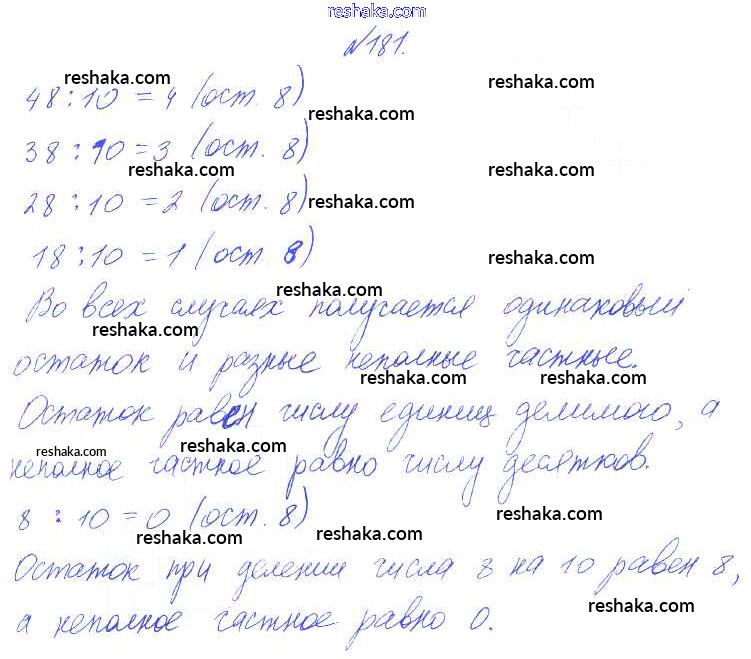 reshaka.com
№181.
reshaka.com
reshaka.com
48:10=4 (ост. 8)
reshaka.com
38:10=3 (ост. 8)
reshaka.com
reshaka.com
28:10=2 (ост. 8)
reshaka.com
18:10=1 (ост. 8)
reshaka.com
reshaka.com
Во всех случаях получается одинаковый
reshaka.com
остаток и разные неполные частные.
reshaka.com
reshaka.com
Остаток равен числу единиц делимого, а
reshaka.com
reshaka.com
неполное частное равно числу десятков.
8:10=0 (ост. 8)
reshaka.com
reshaka.com
reshaka.com
Остаток при делении числа 8 на 10 равен 8,
reshaka.com
а неполное частное равно 0.